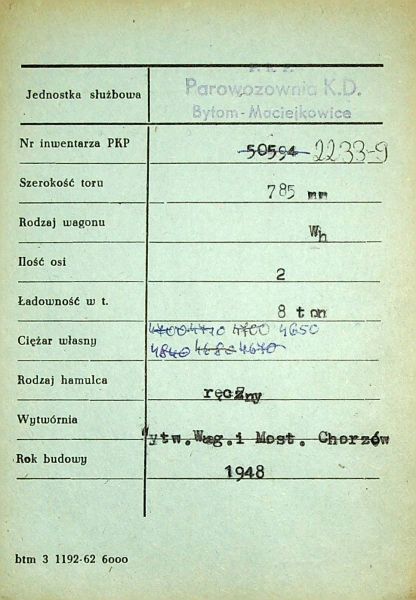 P. K. P.
Jednostka służbowa Parowozownia K.D.
Bytom-Maciejkowice
Nr inwentarza PKP 50594 2233-9
Szerokość toru 785 mm
Rodzaj wagonu Wh
Ilość osi 2
Ładowność w t. 8 ton
Ciężar własny 4700 4650
4840 4680 4640
Rodzaj hamulca ręczny
Wytwórnia Wytw.Wag.i Most. Chorzów
Rok budowy 1948
btm 3 1192-62 6000